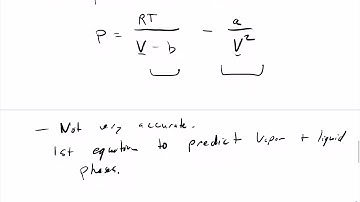 P = RT / (V - b) - a / V²
- Not very accurate.
1st equation to predict vapor + liquid
phases.